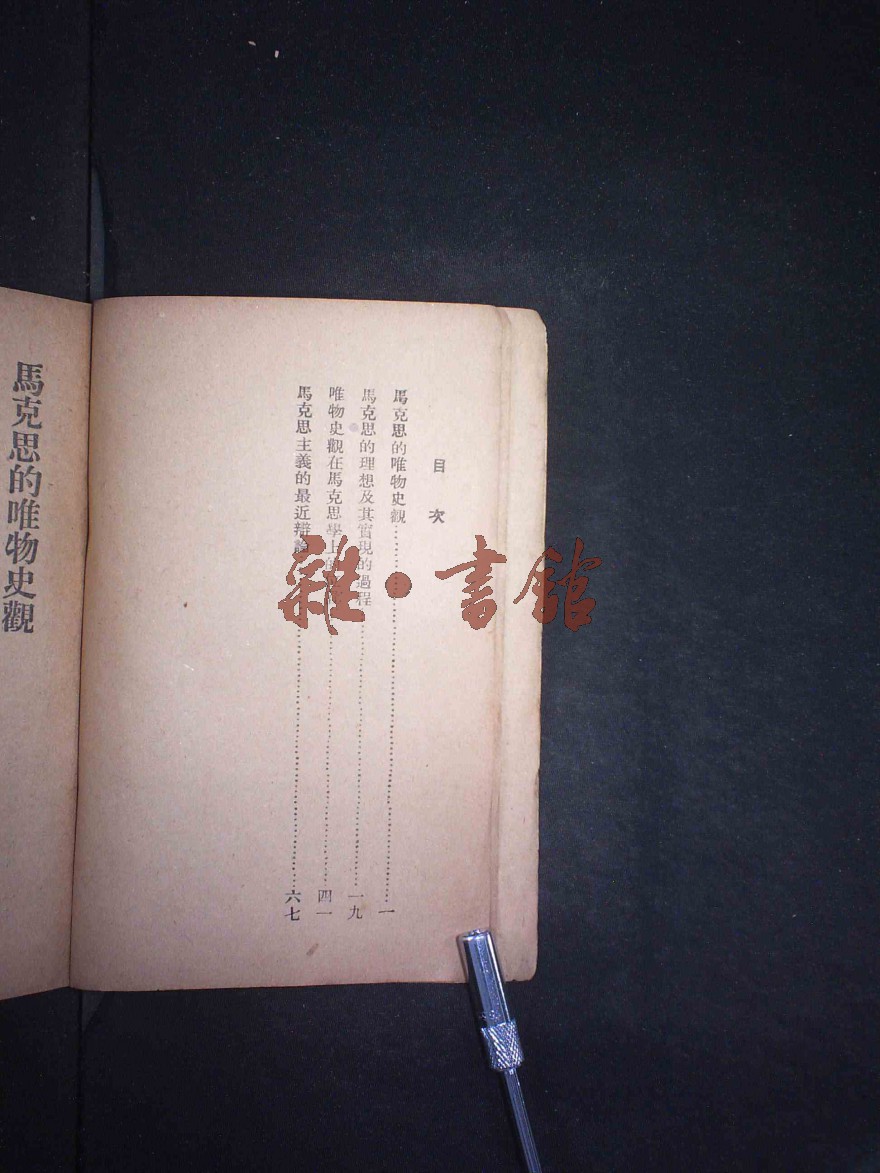 目次
馬克思的唯物史觀……一
馬克思的理想及其實現的過程……一九
唯物史觀在馬克思學上的……四一
馬克思主義的最近辯論……六七
馬克思的唯物史觀
雜·書館